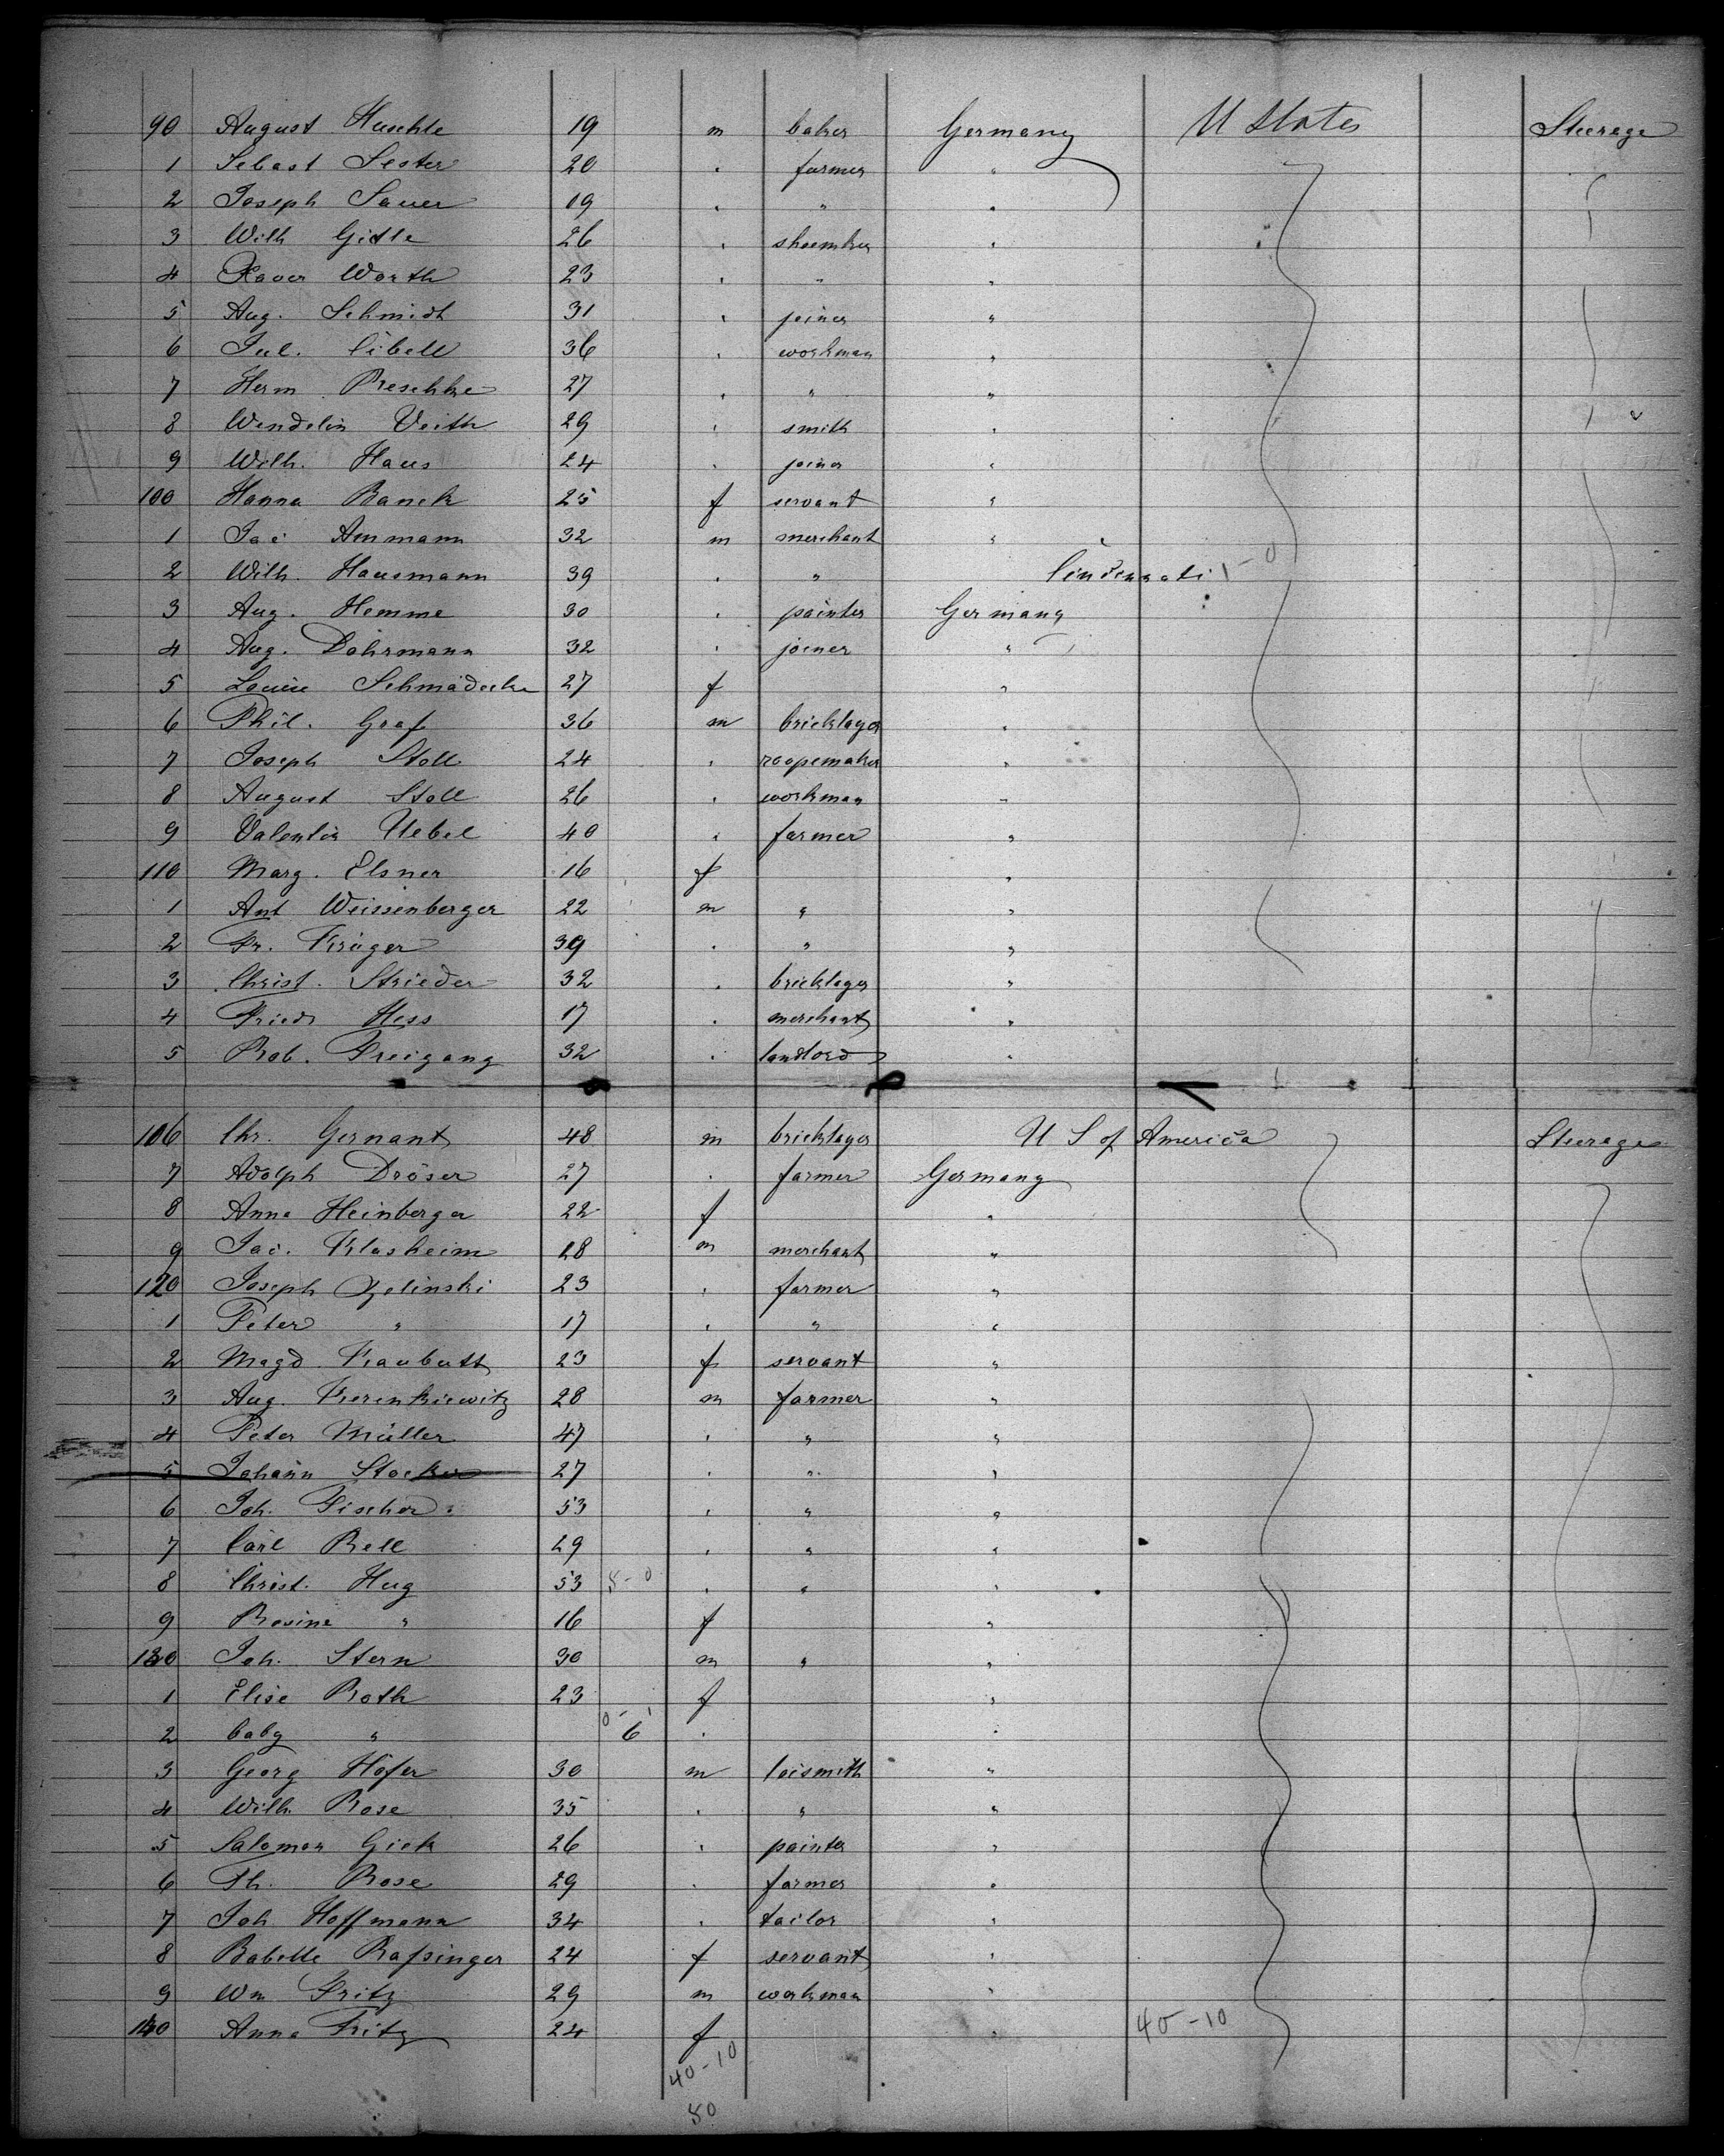 90 August Huschle 19 m baker Germany U States Steerage
1 Sebast Sester 20 . farmer "
2 Joseph Sauer 19 . " "
3 Wilh Gidle 26 . shoemker "
4 Xaver Worth 23 . " "
5 Aug. Schmidt 31 . joiner "
6 Jul. Cibell 36 . workman "
7 Herm. Reschke 27 . " "
8 Wendelin Veith 29 . smith "
9 Wilh. Haus 24 . joiner "
100 Hanna Banek 25 f servant "
1 Jac. Ammann 32 m merchant "
2 Wilh. Hausmann 39 . " Cincinnati 1-0
3 Aug. Hemme 30 . painter Germany
4 Aug. Döhrmann 32 . joiner "
5 Louise Schmädecke 27 f "
6 Phil. Graf 36 m bricklayer "
7 Joseph Stoll 24 . roopemaker "
8 August Stoll 26 . workman "
9 Valentin Uebel 40 . farmer "
110 Marg. Elsner 16 f "
1 Ant Weissenberger 22 m " "
2 Fr. Krüger 39 . " "
3 Christ. Strieder 32 . bricklayer "
4 Friedr Hess 17 . merchant "
5 Rob. Freigang 32 . landlord "
106 Chr. Gernant 48 m bricklayer U S of America Steerage
7 Adolph Dröser 27 . farmer Germany
8 Anna Heinberger 22 f "
9 Jac. Klasheim 28 m merchant "
120 Joseph Zelinski 23 . farmer "
1 Peter " 17 . " "
2 Magd Kaubutt 23 f servant "
3 Aug. Kerenkiewitz 28 m farmer "
4 Peter Müller 47 . " "
5 Johann Stocker 27 . " "
6 Joh. Fischer 53 . " "
7 Carl Rell 29 . " "
8 Christ. Hug 53 5-0 . " "
9 Rosine " 16 f "
130 Joh. Stern 30 m " "
1 Elise Roth 23 f "
2 baby " 0-1 6 . "
3 Georg Höfer 30 m loismith "
4 Wilh. Rose 35 . " "
5 Salomon Giek 26 . painter "
6 Th. Rose 29 . farmer "
7 Joh Hoffmann 34 . tailor "
8 Babette Rafsinger 24 f servant "
9 Wm Fritz 29 m workman "
140 Anna Fritz 24 f " 40-10
40-10
50